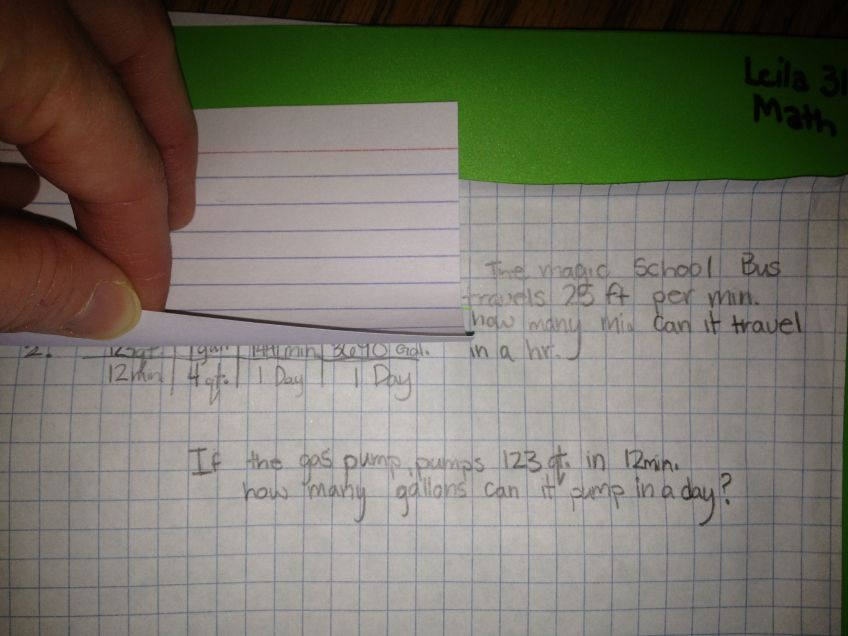 Leila
Math
The magic School Bus
travels 25 ft per min.
how many mi. can it travel
in a hr.
2. 123 qt. 1 gal. 1440 min. 3690 Gal.
12 min 4 qt. 1 Day 1 Day
If the gas pump, pumps 123 qt. in 12 min.
how many gallons can it pump in a day?